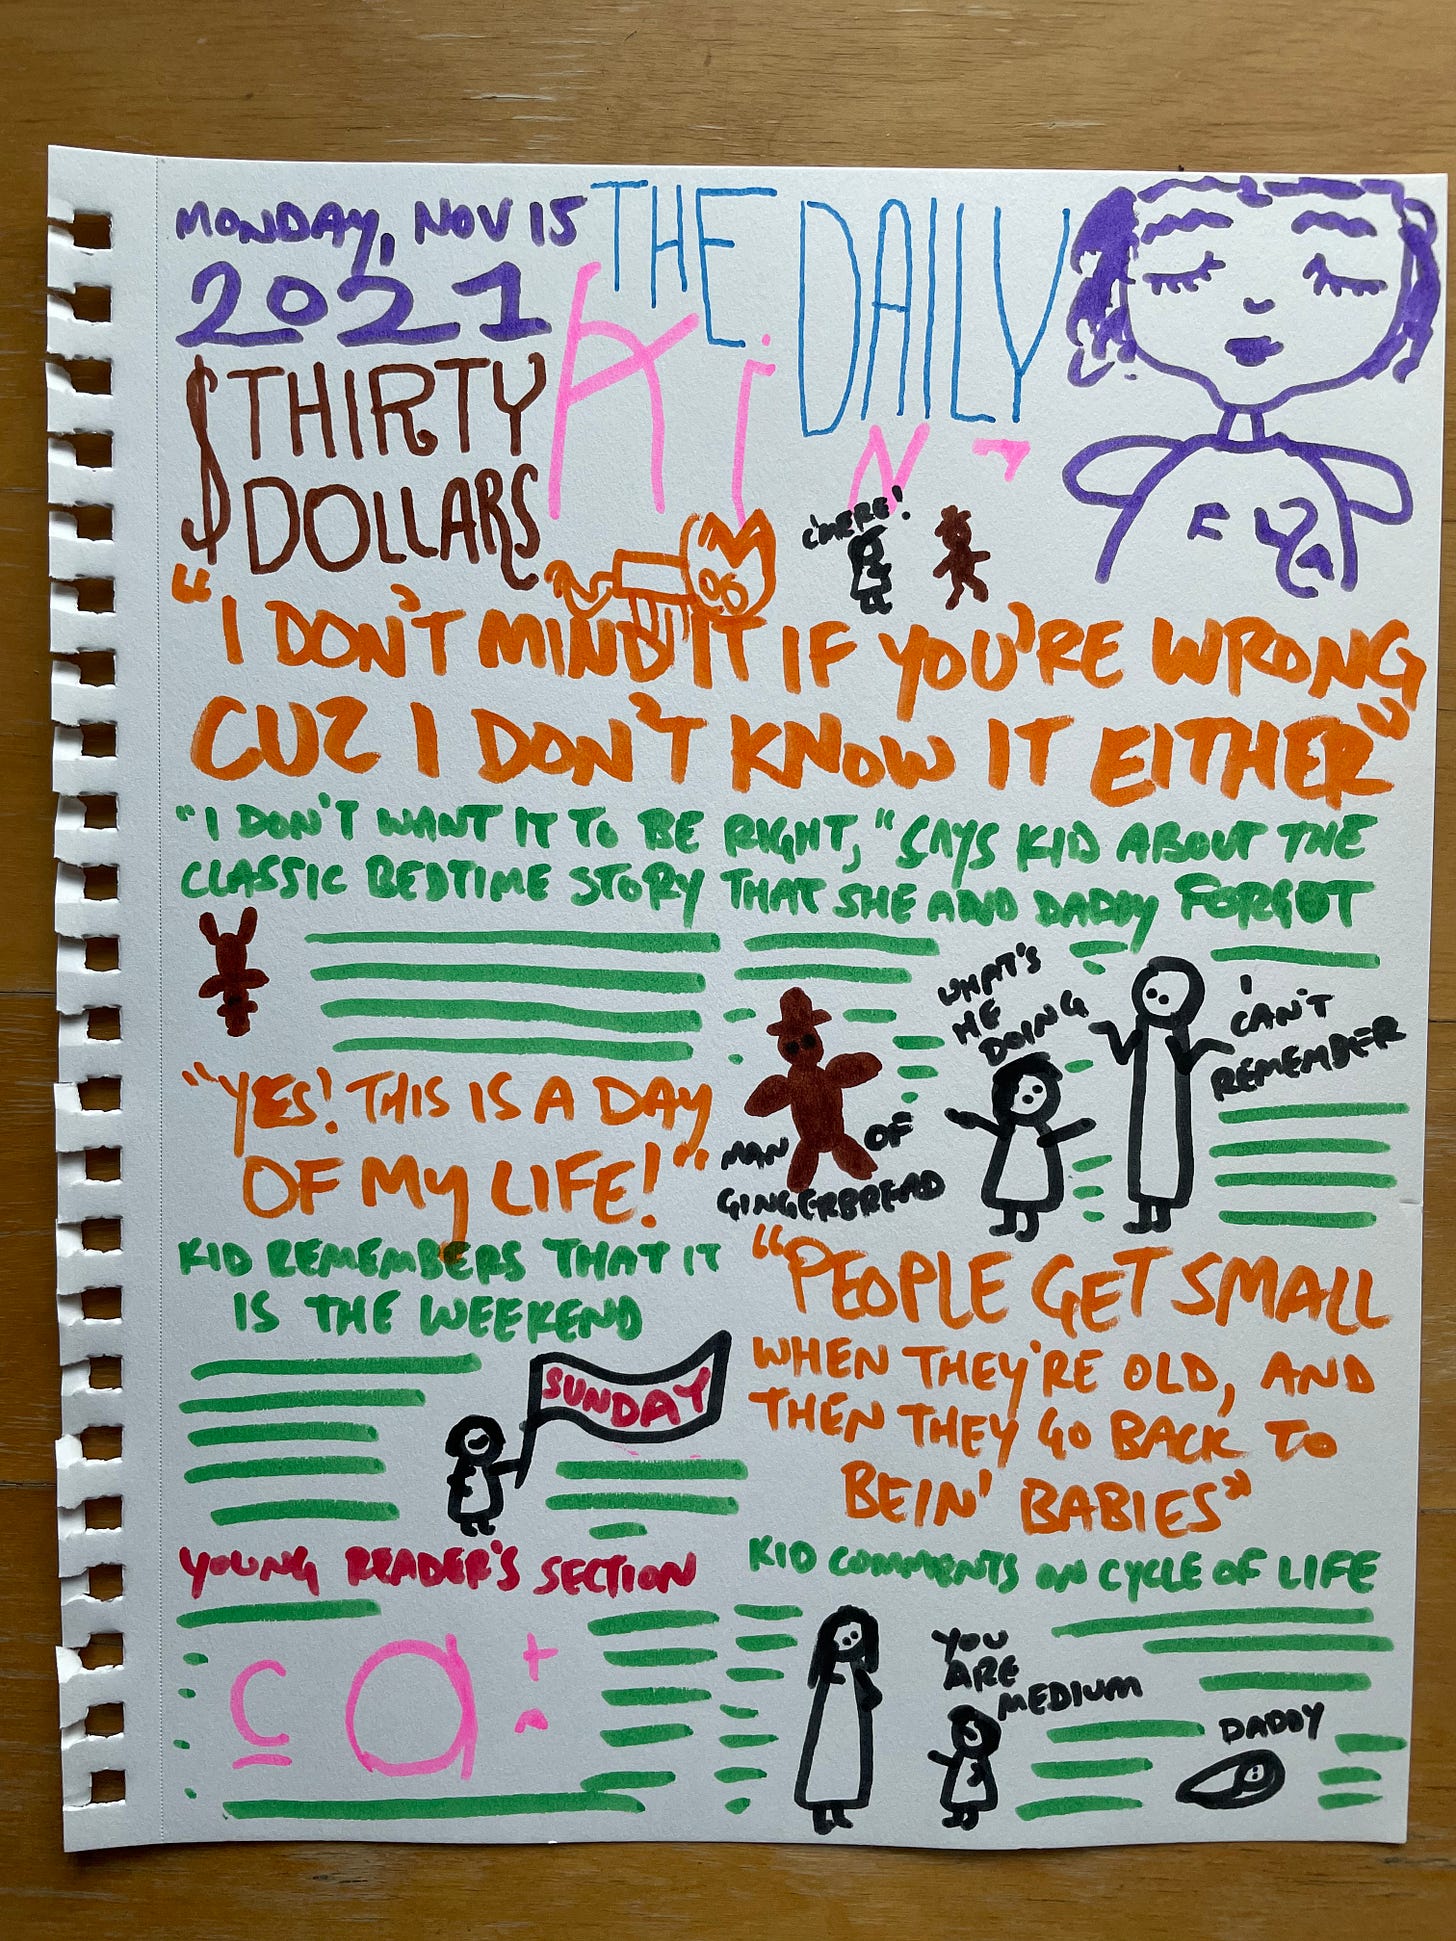 MONDAY, NOV 15
2021
$THIRTY
DOLLARS
THE DAILY
C'MERE!
"I DON'T MIND IT IF YOU'RE WRONG
CUZ I DON'T KNOW IT EITHER"
"I DON'T WANT IT TO BE RIGHT," SAYS KID ABOUT THE
CLASSIC BEDTIME STORY THAT SHE AND DADDY FORGOT
WHAT'S
HE
DOING
I
CAN'T
REMEMBER
MAN OF
GINGERBREAD
"YES! THIS IS A DAY
OF MY LIFE!"
KID REMEMBERS THAT IT
IS THE WEEKEND
SUNDAY
"PEOPLE GET SMALL
WHEN THEY'RE OLD, AND
THEN THEY GO BACK TO
BEIN' BABIES"
KID COMMENTS ON CYCLE OF LIFE
YOU
ARE
MEDIUM
DADDY
YOUNG READER'S SECTION
c a t